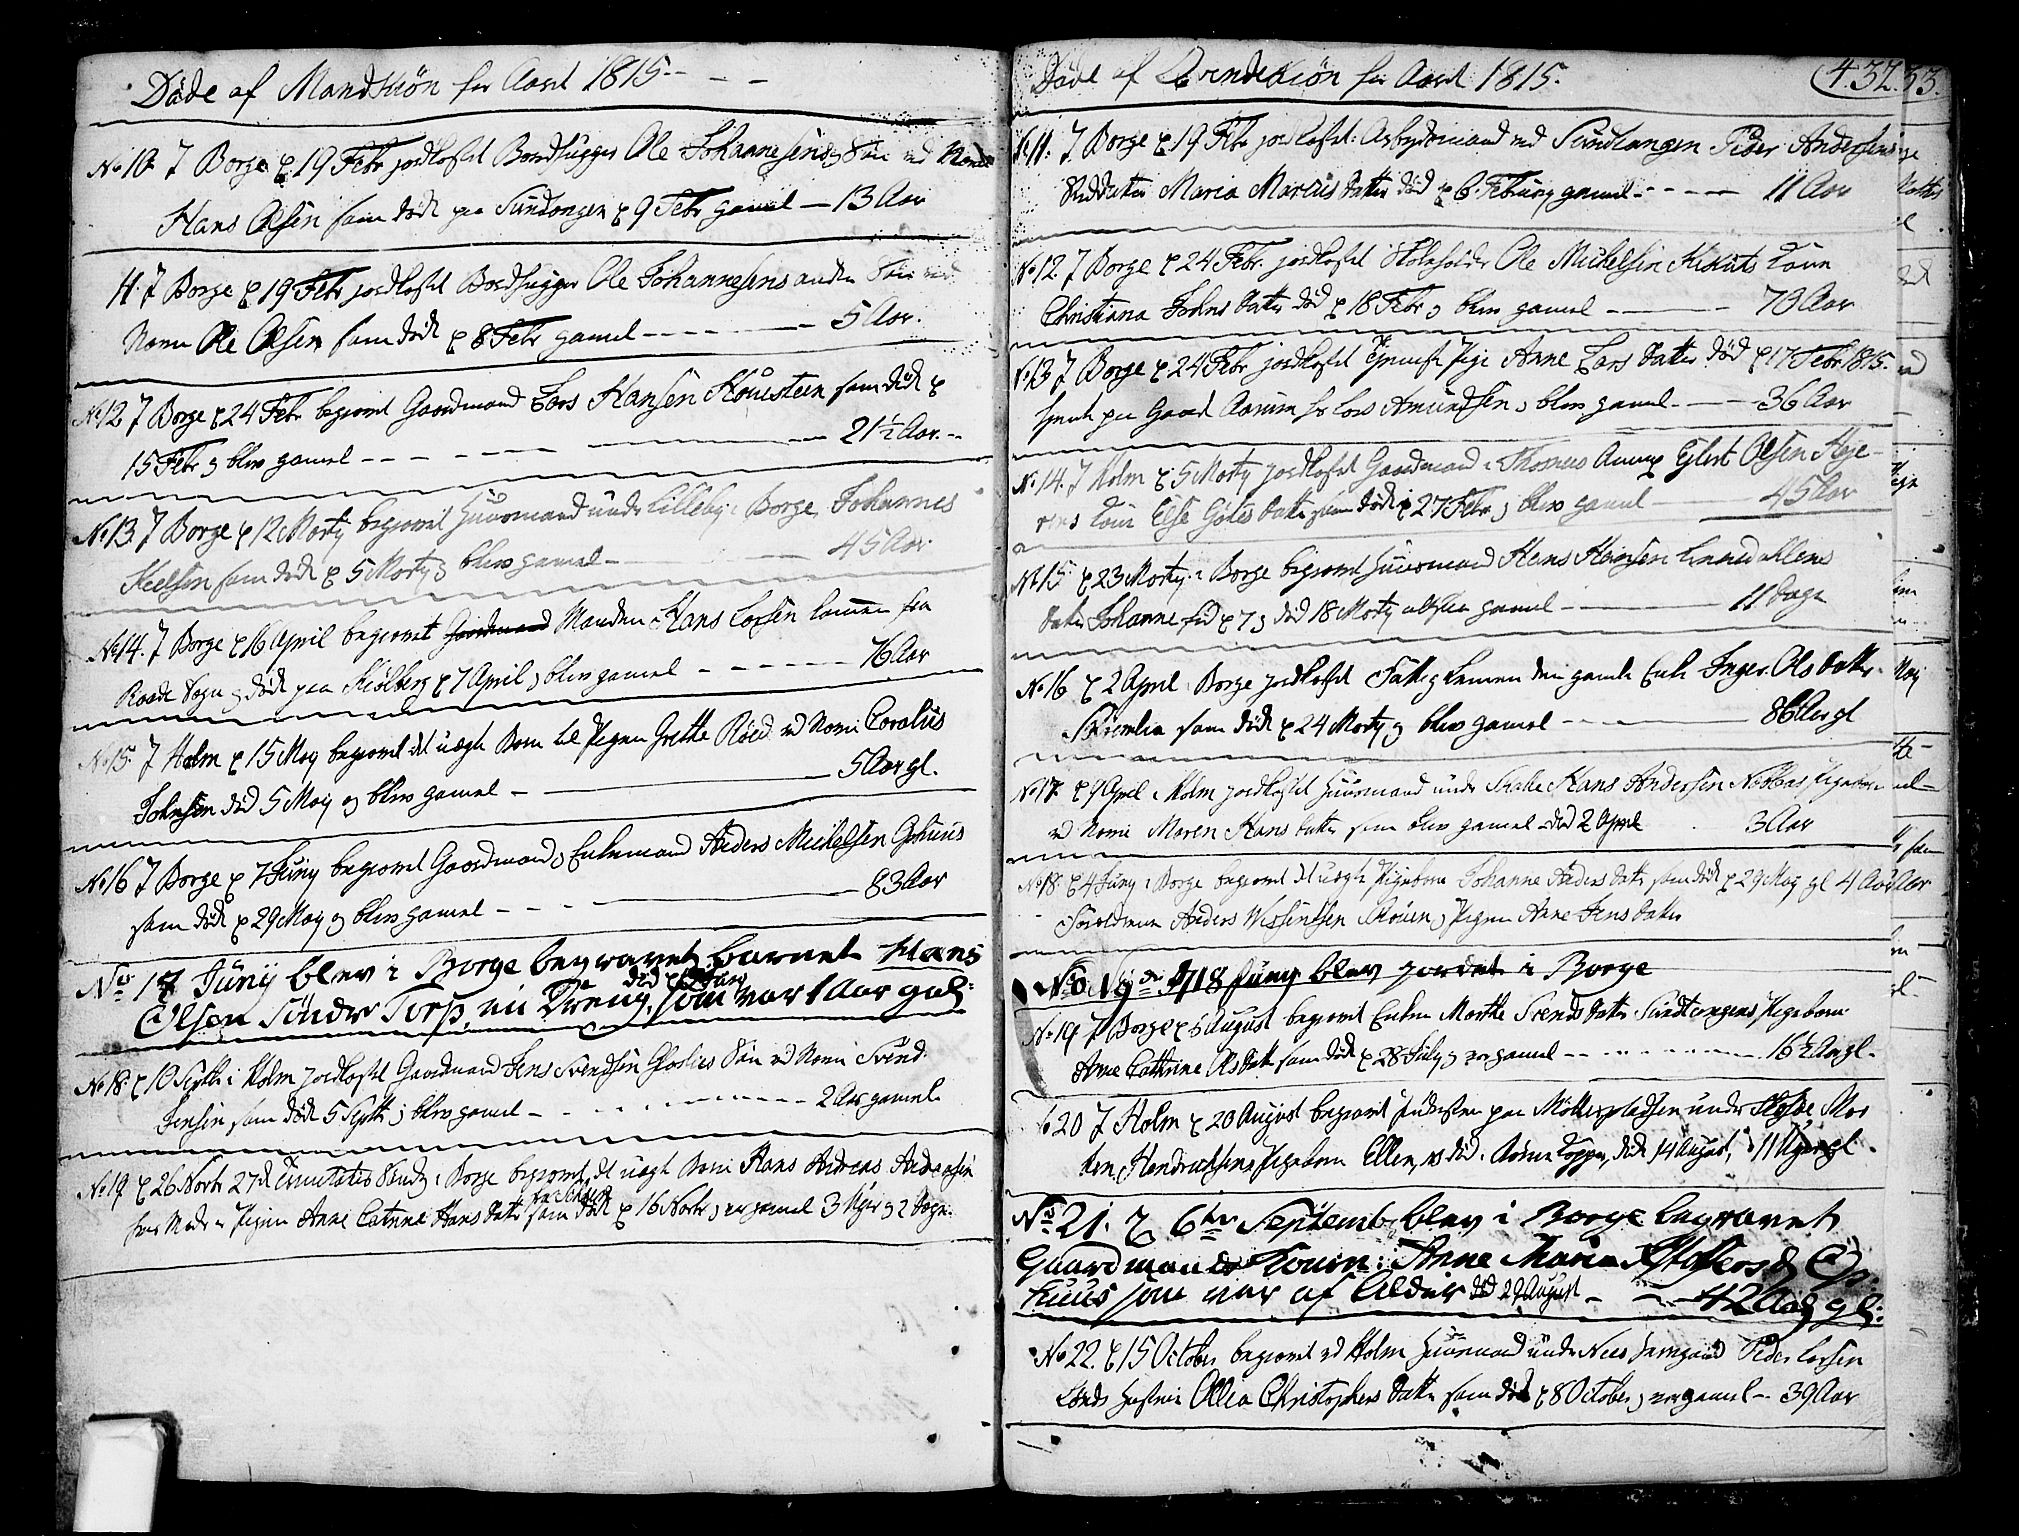 Døde af Mandkiön for Aaret 1815
No 10. J Borge d 19 Febr jordkastet Bordhugger Ole Johannesens Søn ved Navn
Hans Olsen som døde paa Sundengen d 9 Febr gamel — 13 Aar
11. J Borge d 19 Febr jordkastet Bordhugger Ole Johannesens anden Søn ved
Navn Ole Olsen som døde d 8 Febr gamel — 5 Aar.
No 12 J Borge d 24 Febr begravet Gaardmand Lars Hansen Houesteen som døde d
15 Febr og blev gamel — 21½ Aar.
No 13. J Borge d 12 Marty begravet Huusmand under Lilleby i Borge Johannes
Keelsen som døde d 5 Marty og blev gamel — 45 Aar
No 14. J Borge d 16 April begravet Gaardmand Manden Hans Larsen kommen fra
Raade Sogn og døde paa Kiølberg d 7 April og blev gamel — 76 Aar
No 15. J Holm d 15 Maj begravet det uægte Barn til Pigen Grethe Röed ved Navn Coralius
Johnsen død 5 Maj og blev gamel — 5 Aar gl.
No 16 J Borge d 7 Juny begravet Gaardmand og Enkemand Anders Mickelsen
som døde d 29 Maj og blev gamel — 83 Aar
No 17 Juny blev i Borge begravet barnet Hans
Olsen Sönder Torp, en Dreng, som var 1 Aar gl:
No 18. d 10 Septbr i Holm jordkastet Gaardmand Jens Svendsen Søn ved Navn Svend
Jensen som døde 5 Septbr og blev gamel — 2 Aar gamel
No 19. d 26 Novbr 27d Trinitatis Søndag i Borge begravet det uægte Barn Hans Andreas Andersen
hvis Moder er Pigen Anne Catrina Hans datter som døde d 16 Novbr og er gamel 3 Uger og 2 Dage.
Døde af Qvindekiön for Aaret 1815.
4.32.
33.
No 11. J Borge d 19 Febr jordkastet Arbejdsmand ved Sundlangen Peder Andersens
Stivdatter Maria Marcus datter død d 6 Februarj gamel — 11 Aar
No 12. J Borge d 24 Febr. jordkastet Skoleholder Ole Mickelsen Kiskuts Kone
Christiana Johns datter død d 18 Febr og blev gamel — 70 Aar
No 13 J Borge d 24 Febr jordkastet Pige Anne Lars datter død d 17 Febr 1815.
paa Gaard Aarum hos Lars Amundsen og blev gamel — 36 Aar
No 14. J Holm d 5 Marty jordkastet Gaardmand i Thomes Eylert Olsen Heje-
rens Kone Else Giötes datter som døde d 27 Febr og blev gamel — 45 Aar
No 15 d 23 Marty i Borge begravet Huusmand Hans Hansen Lunnedallens
datter Johanne fød d 7 og død 18 Marty altsaa gamel — 11 Dage
No 16 d 2 April i Borge jordkastet Fattiglemen den gamle Enke Inger Ols datter
som døde d 24 Marty og blev gamel — 86 Aar gl
No 17. d 9 April i Holm jordkastet Huusmand under Hans Andersen Pigebarn
ved Navn Maren Hans datter som blev gamel død 2 April 3 Aar
No 18. d 4 Juny i Borge begravet det uægte Pigebarn Johanne Anders datter som døde d 29 Maj gl 4 Aar
Forældrene Anders Wissentsen og Pigen Anne Jens datter
No 19 d. 18 Juny blev jordet i Borge
No 19 J Borge d 6 August begravet Enken Marthe Svends datter Sundtangens Pigebarn
Anne Cathrine Ols datt som døde d 28 July og var gamel — 16½ Aar gl.
No 20 J Holm d 20 August begravet Inderster paa Möllerpladsen under Hafslo Mor
ten Hendrichsens Pigebarn Ellen, død 14 August, 11 Uger gl.
No 21. d 6te Septemb. blev i Borge begravet
Gaardmands Kone: Anne Maria
kuus som var af Alder død 29 August — 42 Aar gl:
No 22. d 15 October begravet ved Holm Huusmand under Nees Peder Larsen
Lunds hustrue Ollea Christophers datter som døde d 8 October og var gamel — 39 Aar